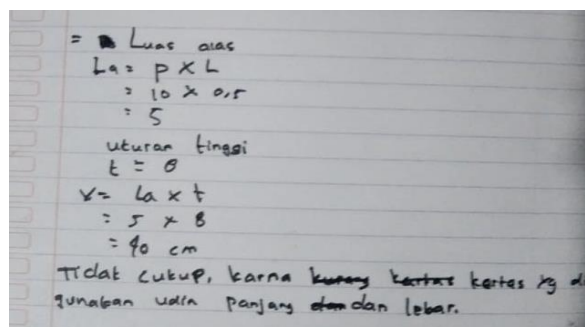 = Luas alas
La = p x L
= 10 x 0,5
= 5
ukuran tinggi
t = 8
V = La x t
= 5 x 8
= 40 cm
Tidak cukup, karna kurang kertas kertas yg di
gunakan udin panjang dan dan lebar.